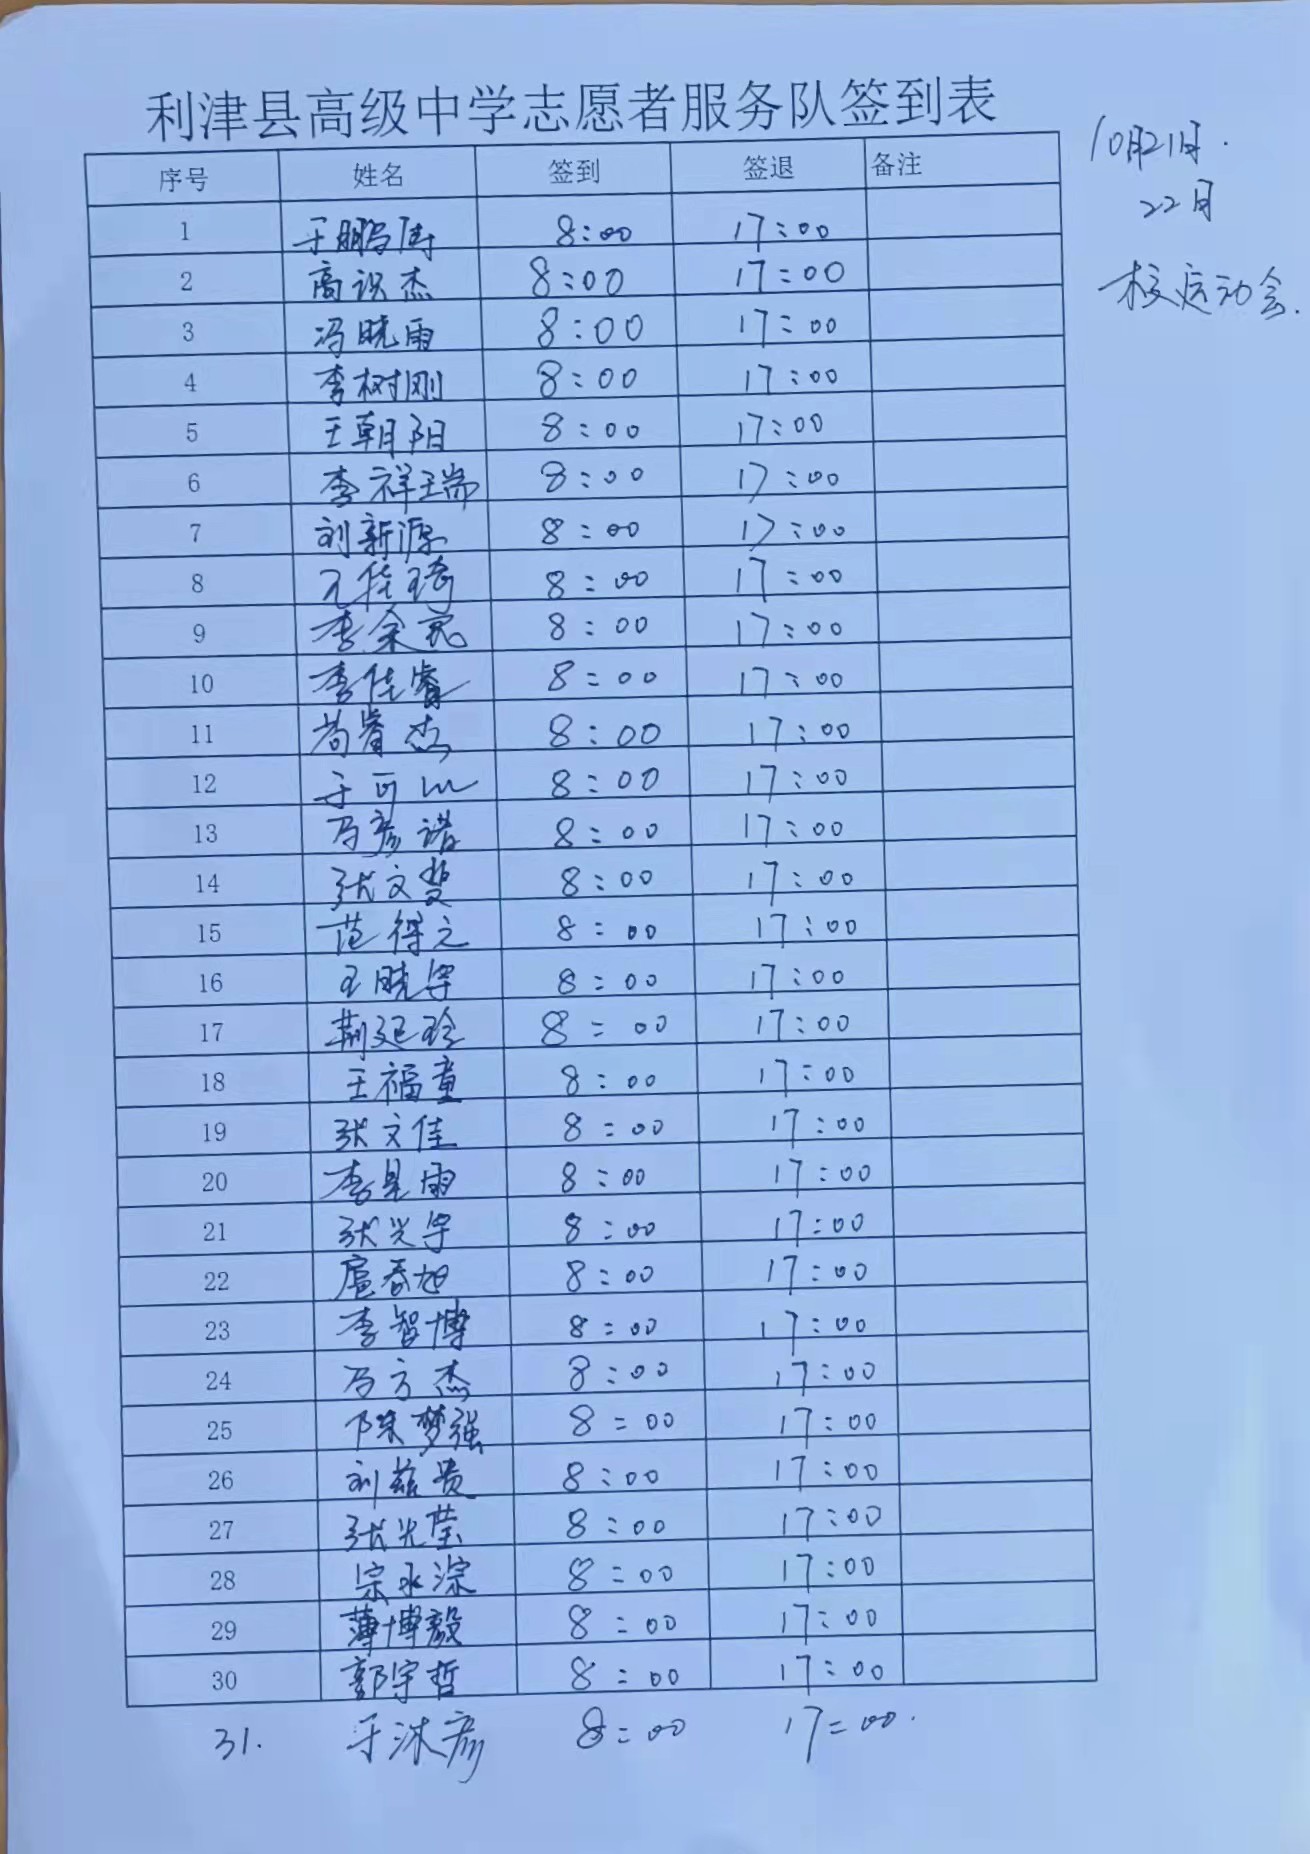 利津县高级中学志愿者服务队签到表
10月21日.
22日
校运动会.
序号 姓名 签到 签退 备注
1 于鹏涛 8:00 17:00
2 高识杰 8:00 17:00
3 冯晓雨 8:00 17:00
4 李树刚 8:00 17:00
5 王朝阳 8:00 17:00
6 李祥瑞 8:00 17:00
7 刘新源 8:00 17:00
8 王佳琦 8:00 17:00
9 李余亮 8:00 17:00
10 李佳睿 8:00 17:00
11 尚睿杰 8:00 17:00
12 于可心 8:00 17:00
13 冯彦诺 8:00 17:00
14 张文斐 8:00 17:00
15 范得之 8:00 17:00
16 王晓宇 8:00 17:00
17 荆延玲 8:00 17:00
18 王福童 8:00 17:00
19 张文佳 8:00 17:00
20 李昱雨 8:00 17:00
21 张兴宇 8:00 17:00
22 扈春旭 8:00 17:00
23 李智博 8:00 17:00
24 冯方杰 8:00 17:00
25 陈梦强 8:00 17:00
26 刘兹贵 8:00 17:00
27 张光莹 8:00 17:00
28 宗永淙 8:00 17:00
29 薄博毅 8:00 17:00
30 郭宇哲 8:00 17:00
31. 于沐彦 8:00 17:00.